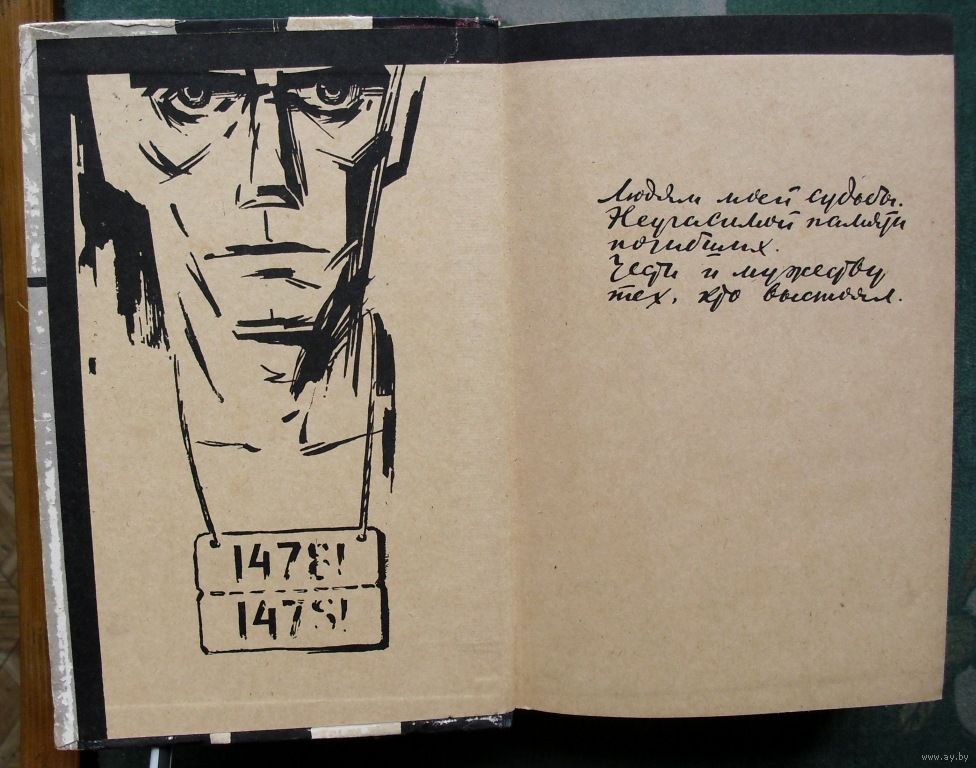 1478!
1478!
Людям моей судьбы.
Неугасимой памяти
погибших.
Чести и мужеству
тех, кто выстоял.
www.ay.by